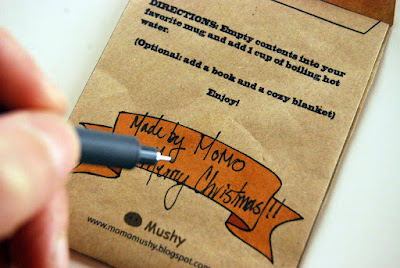 DIRECTIONS: Empty contents into your
favorite mug and add 1 cup of boiling hot
water.
(Optional: add a book and a cozy blanket)
Enjoy!
Made by MoMo
Merry Christmas!!
Mushy
www.momomushy.blogspot.com